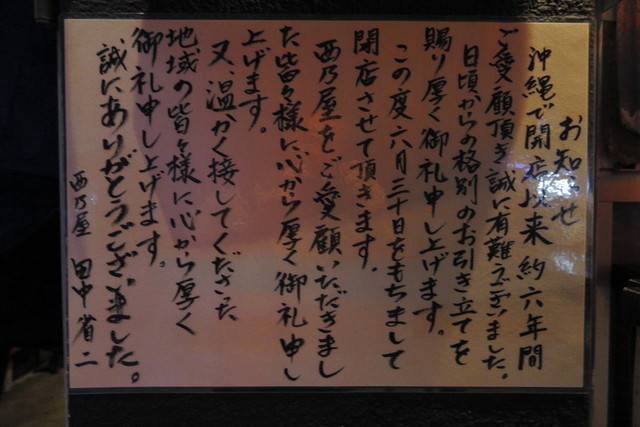 お知らせ
沖縄で開店以来約六年間
ご愛顧頂き誠に有難うございました。
日頃からの格別のお引き立てを
賜り厚く御礼申し上げます。
この度六月三十日をもちまして
閉店させて頂きます。
西乃屋をご愛顧いただきまし
た皆々様に心から厚く御礼申し
上げます。
又、温かく接してくださった
地域の皆々様に心から厚く
御礼申し上げます。
誠にありがとうございました。
西乃屋 田中省二